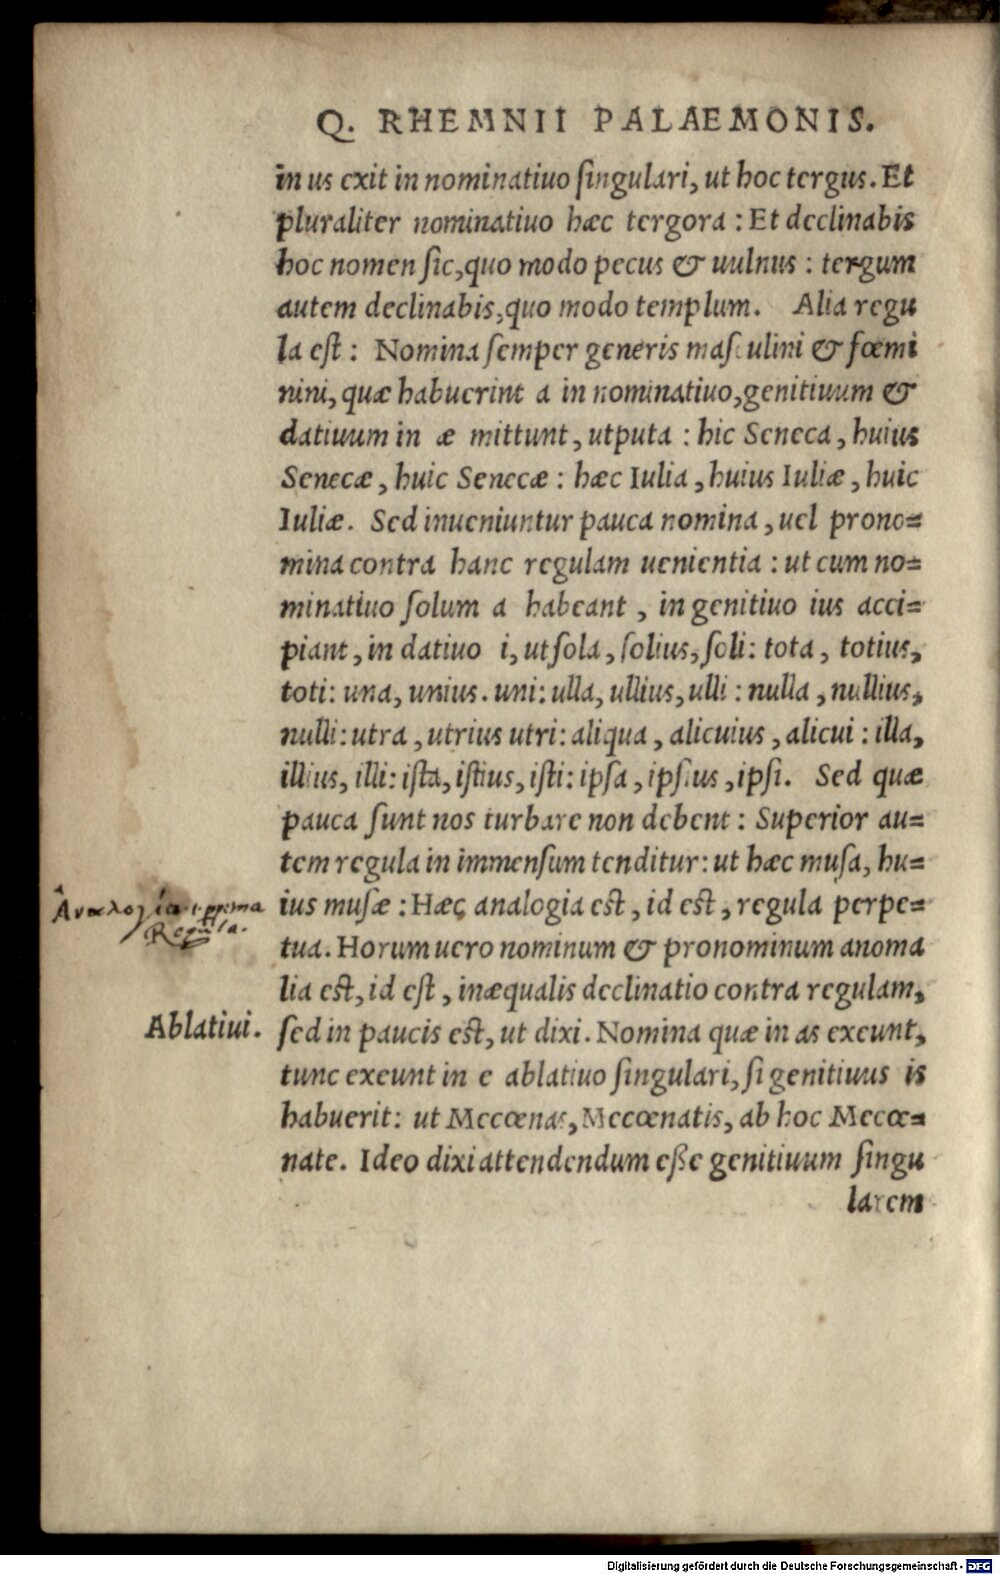 Q. RHEMNII PALAEMONIS.
in us exit in nominatiuo ſingulari, ut hoc tergus. Et
pluraliter nominatiuo hæc tergora : Et declinabis
hoc nomen ſic, quo modo pecus & uulnus : tergum
autem declinabis, quo modo templum. Alia regu
la eſt : Nomina ſemper generis maſculini & fœmi
nini, quæ habuerint a in nominatiuo, genitiuum &
datiuum in æ mittunt, utputa : hic Seneca, huius
Senecæ, huic Senecæ : hæc Iulia, huius Iuliæ, huic
Iuliæ. Sed inueniuntur pauca nomina, uel prono=
mina contra hanc regulam uenientia : ut cum no=
minatiuo ſolum a habeant, in genitiuo ius acci=
piant, in datiuo i, ut ſola, ſolius, ſoli : tota, totius,
toti : una, unius. uni : ulla, ullius, ulli : nulla, nullius,
nulli : utra, utrius utri : aliqua, alicuius, alicui : illa,
illius, illi : iſta, iſtius, iſti : ipſa, ipſius, ipſi. Sed quæ
pauca ſunt nos turbare non debent : Superior au=
tem regula in immenſum tenditur : ut hæc muſa, hu=
Αναλογία prima
Regula.
ius muſæ : Hæc analogia eſt, id eſt, regula perpe=
tua. Horum uero nominum & pronominum anoma
lia eſt, id eſt, inæqualis declinatio contra regulam,
Ablatiui.
ſed in paucis eſt, ut dixi. Nomina quæ in as exeunt,
tunc exeunt in e ablatiuo ſingulari, ſi genitiuus is
habuerit : ut Mecœnas, Mecœnatis, ab hoc Mecœ=
nate. Ideo dixi attendendum eſſe genitiuum ſingu
larem
Digitalisierung gefördert durch die Deutsche Forschungsgemeinschaft - DFG